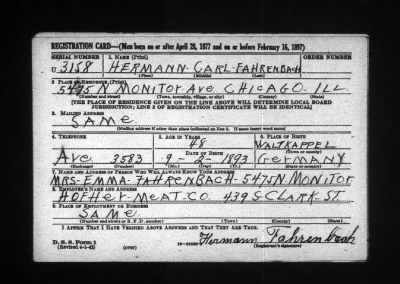 REGISTRATION CARD—(Men born on or after April 28, 1877 and on or before February 16, 1897)
SERIAL NUMBER 1. NAME (Print) ORDER NUMBER
U 3158 HERMANN-CARL-FAHRENBACH
(First) (Middle) (Last)
2. PLACE OF RESIDENCE (Print)
5475 N MONITOR AVE CHICAGO ILL
(Number and street) (Town, township, village, or city) (County) (State)
[THE PLACE OF RESIDENCE GIVEN ON THE LINE ABOVE WILL DETERMINE LOCAL BOARD
JURISDICTION; LINE 2 OF REGISTRATION CERTIFICATE WILL BE IDENTICAL]
3. MAILING ADDRESS
SAME
[Mailing address if other than place indicated on line 2. If same insert word same]
4. TELEPHONE 5. AGE IN YEARS 6. PLACE OF BIRTH
48 WALTKAPPEL
DATE OF BIRTH (Town or county)
AVE 3583 9-2-1893 GERMANY
(Exchange) (Number) (Mo.) (Day) (Yr.) (State or country)
7. NAME AND ADDRESS OF PERSON WHO WILL ALWAYS KNOW YOUR ADDRESS
MRS-EMMA-FAHRENBACH-5475N MONITOR
8. EMPLOYER'S NAME AND ADDRESS
HOFHER MEAT-CO 439 S-CLARK-ST
9. PLACE OF EMPLOYMENT OR BUSINESS
SAME
(Number and street or R. F. D. number) (Town) (County) (State)
I AFFIRM THAT I HAVE VERIFIED ABOVE ANSWERS AND THAT THEY ARE TRUE.
D. S. S. Form 1
(Revised 4-1-42) (over) Hermann Fahrenbach
(Registrant's signature)